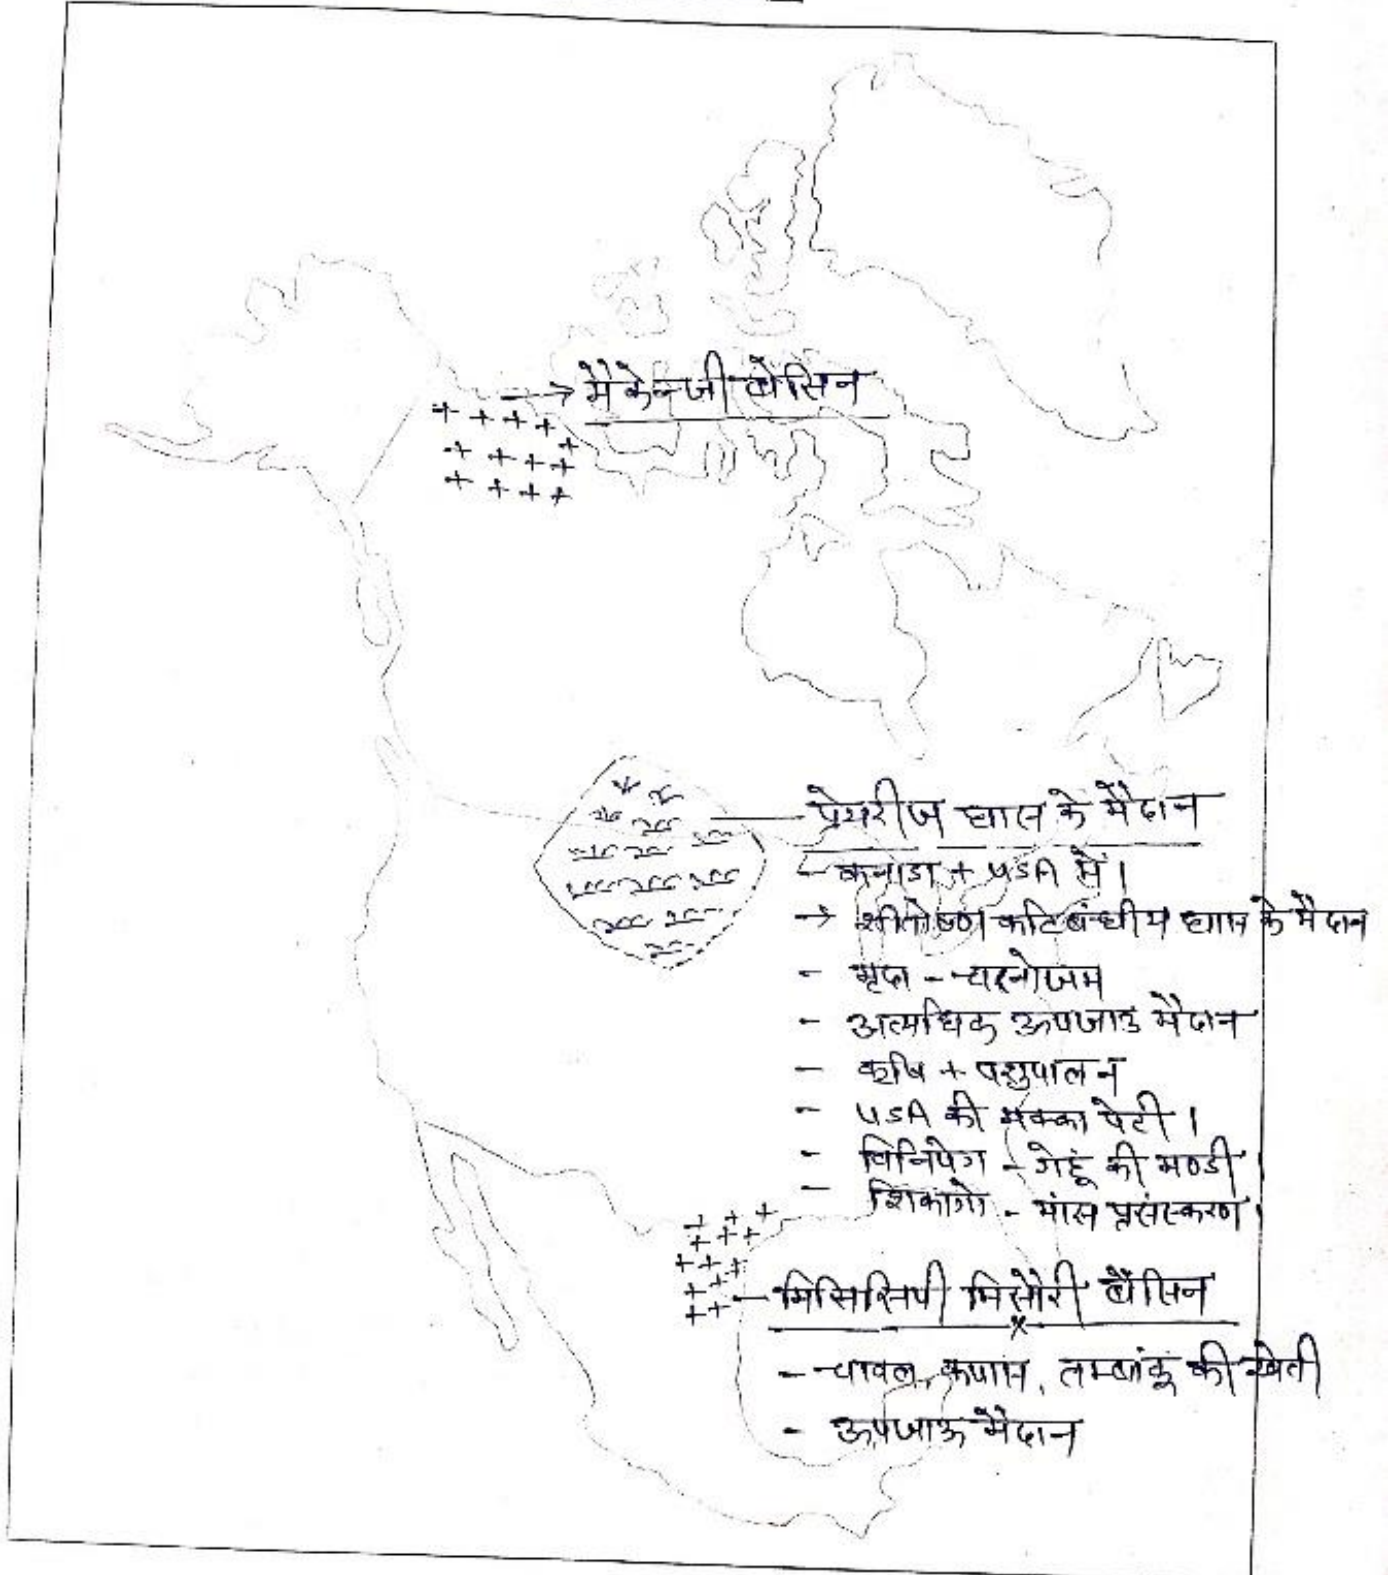 मैकेन्जी बेसिन
प्रेयरीज घास के मैदान
- कनाडा + USA में।
→ शीतोष्ण कटिबंधीय घास के मैदान
- मृदा - चरनोजम
- अत्यधिक ऊपजाउ मैदान
- कृषि + पशुपालन
- USA की मक्का पेटी।
- विनिपेग - गेहूं की मण्डी।
- शिकागो - मांस प्रसंस्करण।
मिसिसिपी मिसौरी बेंसिन
- चावल, कपास, तम्बांकू की खेती
- ऊपजाऊ मैदान